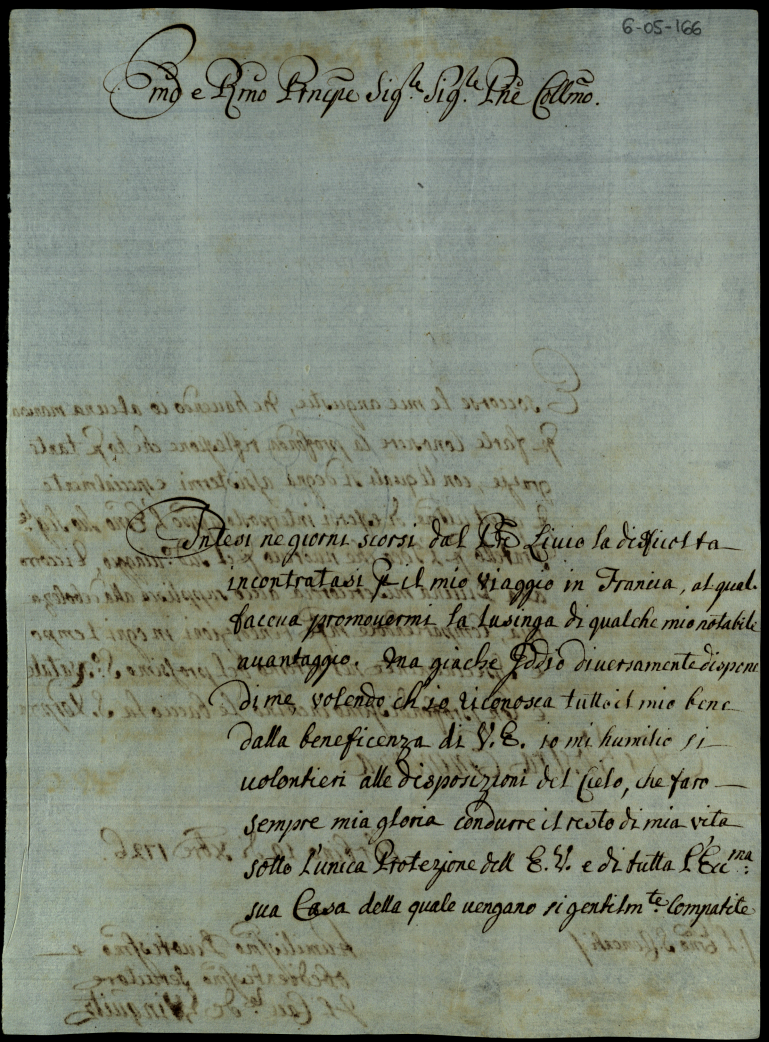 6-05-166
Emo e Rmo Prnpe Sigre Sigre Pne Collmo.
Intesi ne giorni scorsi dal Livio la difficolta
incontratasi p il mio viaggio in Francia, al qual
faceva promovermi la lusinga di qualche mio notabile
avantaggio. Ma giache Iddio diversamente dispone
di me volendo ch'io riconosca tutto il mio bene
dalla beneficenza di V.E. io mi humilio si
volontieri alle disposizioni del Cielo, che faro
sempre mia gloria condurre il resto di mia vita
sotto l'unica Protezione dell E.V. e di tutta l'Eccma
sua Casa della quale vengano si gentilmte Compatite